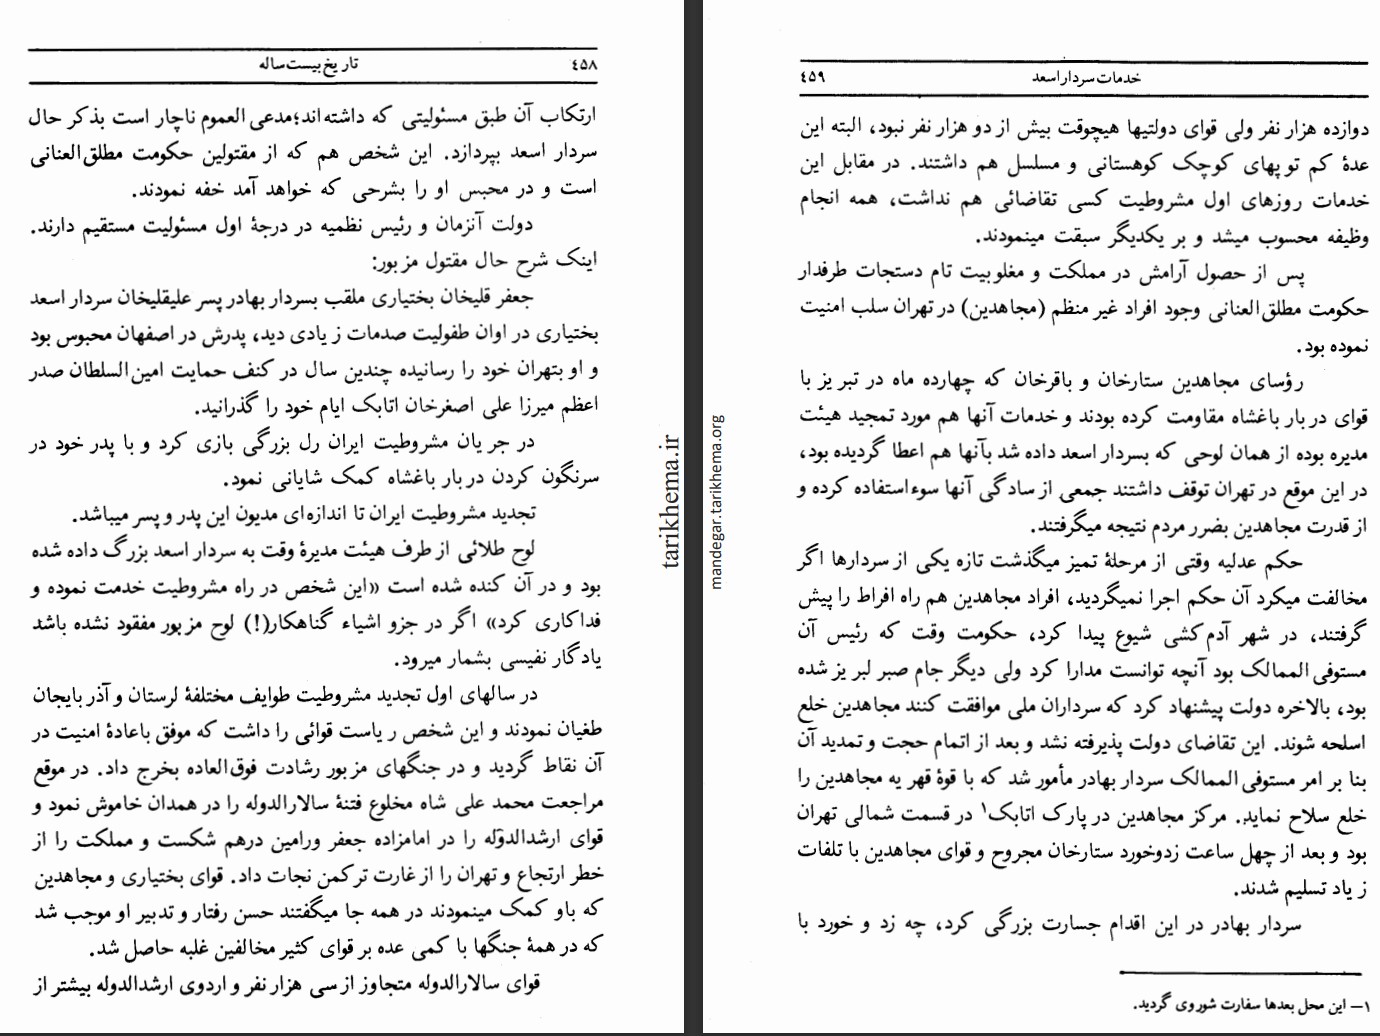 ٤٥٨
تاریخ بیست ساله
ارتکاب آن طبق مسئولیتی که داشته‌اند؛مدعی العموم ناچار است بذکر حال
سردار اسعد بپردازد. این شخص هم که از مقتولین حکومت مطلق‌العنانی
است و در محبس او را بشرحی که خواهد آمد خفه نمودند.
دولت آنزمان و رئیس نظمیه در درجۀ اول مسئولیت مستقیم دارند.
اینک شرح حال مقتول مزبور:
جعفر قلیخان بختیاری ملقب بسردار بهادر پسر علیقلیخان سردار اسعد
بختیاری در اوان طفولیت صدمات زیادی دید، پدرش در اصفهان محبوس بود
و او بتهران خود را رسانیده چندین سال در کنف حمایت امین‌السلطان صدر
اعظم میرزا علی اصغرخان اتابک ایام خود را گذرانید.
در جریان مشروطیت ایران رل بزرگی بازی کرد و با پدر خود در
سرنگون کردن دربار باغشاه کمک شایانی نمود.
تجدید مشروطیت ایران تا اندازه‌ای مدیون این پدر و پسر میباشد.
لوح طلائی از طرف هیئت مدیرۀ وقت به سردار اسعد بزرگ داده شده
بود و در آن کنده شده است «این شخص در راه مشروطیت خدمت نموده و
فداکاری کرد» اگر در جزو اشیاء گناهکار(!) لوح مزبور مفقود نشده باشد
یادگار نفیسی بشمار میرود.
در سالهای اول تجدید مشروطیت طوایف مختلفۀ لرستان و آذربایجان
طغیان نمودند و این شخص ریاست قوائی را داشت که موفق باعادۀ امنیت در
آن نقاط گردید و در جنگهای مزبور رشادت فوق‌العاده بخرج داد. در موقع
مراجعت محمد علی شاه مخلوع فتنۀ سالارالدوله را در همدان خاموش نمود و
قوای ارشدالدوله را در امامزاده جعفر ورامین درهم شکست و مملکت را از
خطر ارتجاع و تهران را از غارت ترکمن نجات داد. قوای بختیاری و مجاهدین
که باو کمک مینمودند در همه جا میگفتند حسن رفتار و تدبیر او موجب شد
که در همۀ جنگها با کمی عده بر قوای کثیر مخالفین غلبه حاصل شد.
قوای سالارالدوله متجاوز از سی هزار نفر و اردوی ارشدالدوله بیشتر از
tarikhema.ir
mandegar.tarikhema.org
خدمات سردار اسعد
٤٥٩
دوازده هزار نفر ولی قوای دولتیها هیچوقت بیش از دو هزار نفر نبود، البته این
عدۀ کم توپهای کوچک کوهستانی و مسلسل هم داشتند. در مقابل این
خدمات روزهای اول مشروطیت کسی تقاضائی هم نداشت، همه انجام
وظیفه محسوب میشد و بر یکدیگر سبقت مینمودند.
پس از حصول آرامش در مملکت و مغلوبیت تام دستجات طرفدار
حکومت مطلق‌العنانی وجود افراد غیر منظم (مجاهدین) در تهران سلب امنیت
نموده بود.
رؤسای مجاهدین ستارخان و باقرخان که چهارده ماه در تبریز با
قوای دربار باغشاه مقاومت کرده بودند و خدمات آنها هم مورد تمجید هیئت
مدیره بوده از همان لوحی که بسردار اسعد داده شد بآنها هم اعطا گردیده بود،
در این موقع در تهران توقف داشتند جمعی از سادگی آنها سوء‌استفاده کرده و
از قدرت مجاهدین بضرر مردم نتیجه میگرفتند.
حکم عدلیه وقتی از مرحلۀ تمیز میگذشت تازه یکی از سردارها اگر
مخالفت میکرد آن حکم اجرا نمیگردید، افراد مجاهدین هم راه افراط را پیش
گرفتند، در شهر آدم‌کشی شیوع پیدا کرد، حکومت وقت که رئیس آن
مستوفی‌الممالک بود آنچه توانست مدارا کرد ولی دیگر جام صبر لبریز شده
بود، بالاخره دولت پیشنهاد کرد که سرداران ملی موافقت کنند مجاهدین خلع
اسلحه شوند. این تقاضای دولت پذیرفته نشد و بعد از اتمام حجت و تمدید آن
بنا بر امر مستوفی‌الممالک سردار بهادر مأمور شد که با قوۀ قهریه مجاهدین را
خلع سلاح نماید. مرکز مجاهدین در پارک اتابک۱ در قسمت شمالی تهران
بود و بعد از چهل ساعت زدوخورد ستارخان مجروح و قوای مجاهدین با تلفات
زیاد تسلیم شدند.
سردار بهادر در این اقدام جسارت بزرگی کرد، چه زد و خورد با
۱— این محل بعدها سفارت شوروی گردید.